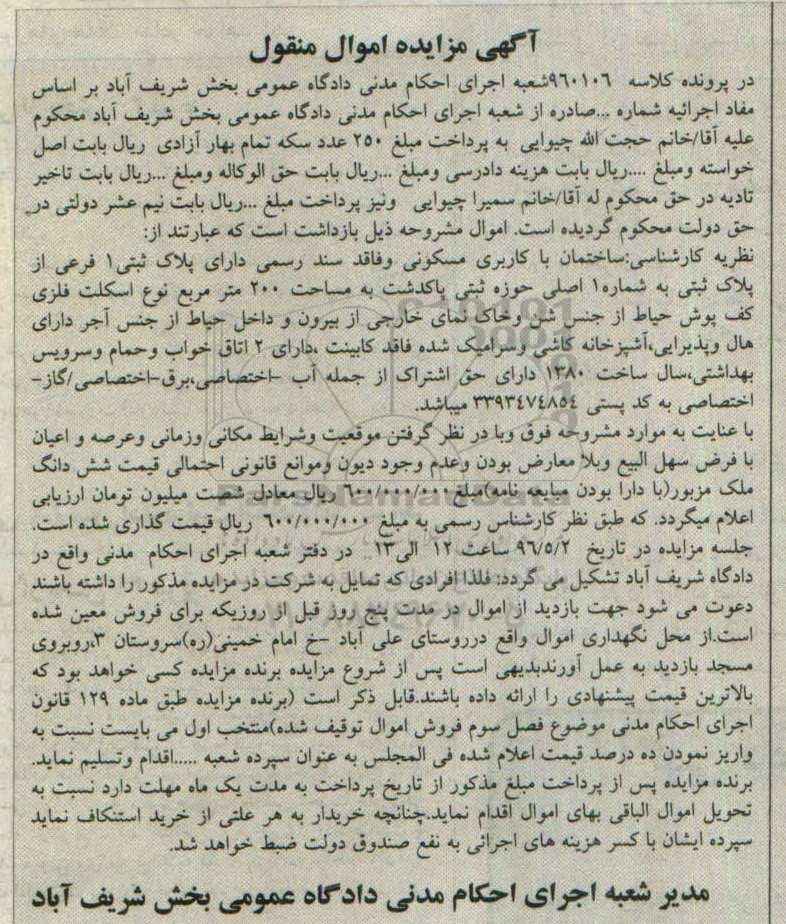 آگهی مزایده اموال منقول
در پرونده کلاسه ۹۶۰۱۰۶شعبه اجرای احکام مدنی دادگاه عمومی بخش شریف آباد بر اساس
مفاد اجرائیه شماره ...صادره از شعبه اجرای احکام مدنی دادگاه عمومی بخش شریف آباد محکوم
علیه آقا/خانم حجت الله چیوایی به پرداخت مبلغ ۲۵۰ عدد سکه تمام بهار آزادی ریال بابت اصل
خواسته ومبلغ ....ریال بابت هزینه دادرسی ومبلغ ...ریال بابت حق الوکاله ومبلغ ...ریال بابت تاخیر
تادیه در حق محکوم له آقا/خانم سمیرا چیوایی ونیز پرداخت مبلغ ...ریال بابت نیم عشر دولتی در
حق دولت محکوم گردیده است. اموال مشروحه ذیل بازداشت است که عبارتند از:
نظریه کارشناسی:ساختمان با کاربری مسکونی وفاقد سند رسمی دارای پلاک ثبتی۱ فرعی از
پلاک ثبتی به شماره۱ اصلی حوزه ثبتی پاکدشت به مساحت ۲۰۰ متر مربع نوع اسکلت فلزی
کف پوش حیاط از جنس شن وخاک نمای خارجی از بیرون و داخل حیاط از جنس آجر دارای
هال وپذیرایی،آشپزخانه کاشی وسرامیک شده فاقد کابینت ،دارای ۲ اتاق خواب وحمام وسرویس
بهداشتی،سال ساخت ۱۳۸۰ دارای حق اشتراک از جمله آب -اختصاصی،برق-اختصاصی/گاز-
اختصاصی به کد پستی ۳۳۹۳۴۷۴۸۵۴ میباشد.
با عنایت به موارد مشروحه فوق وبا در نظر گرفتن موقعیت وشرایط مکانی وزمانی وعرصه و اعیان
با فرض سهل البیع وبلا معارض بودن وعدم وجود دیون وموانع قانونی احتمالی قیمت شش دانگ
ملک مزبور(با دارا بودن مبایعه نامه)مبلغ ۶۰۰/۰۰۰/۰۰۰ ریال معادل شصت میلیون تومان ارزیابی
اعلام میگردد. که طبق نظر کارشناس رسمی به مبلغ ۶۰۰/۰۰۰/۰۰۰ ریال قیمت گذاری شده است.
جلسه مزایده در تاریخ ۹۶/۵/۲ ساعت ۱۲ الی۱۳ در دفتر شعبه اجرای احکام مدنی واقع در
دادگاه شریف آباد تشکیل می گردد: فلذا افرادی که تمایل به شرکت در مزایده مذکور را داشته باشند
دعوت می شود جهت بازدید از اموال در مدت پنج روز قبل از روزیکه برای فروش معین شده
است.از محل نگهداری اموال واقع درروستای علی آباد -خ امام خمینی(ره)سروستان ۳،روبروی
مسجد بازدید به عمل آورندبدیهی است پس از شروع مزایده برنده مزایده کسی خواهد بود که
بالاترین قیمت پیشنهادی را ارائه داده باشند.قابل ذکر است (برنده مزایده طبق ماده ۱۲۹ قانون
اجرای احکام مدنی موضوع فصل سوم فروش اموال توقیف شده)منتخب اول می بایست نسبت به
واریز نمودن ده درصد قیمت اعلام شده فی المجلس به عنوان سپرده شعبه .....اقدام وتسلیم نماید.
برنده مزایده پس از پرداخت مبلغ مذکور از تاریخ پرداخت به مدت یک ماه مهلت دارد نسبت به
تحویل اموال الباقی بهای اموال اقدام نماید.چنانچه خریدار به هر علتی از خرید استنکاف نماید
سپرده ایشان با کسر هزینه های اجرائی به نفع صندوق دولت ضبط خواهد شد.
مدیر شعبه اجرای احکام مدنی دادگاه عمومی بخش شریف آباد